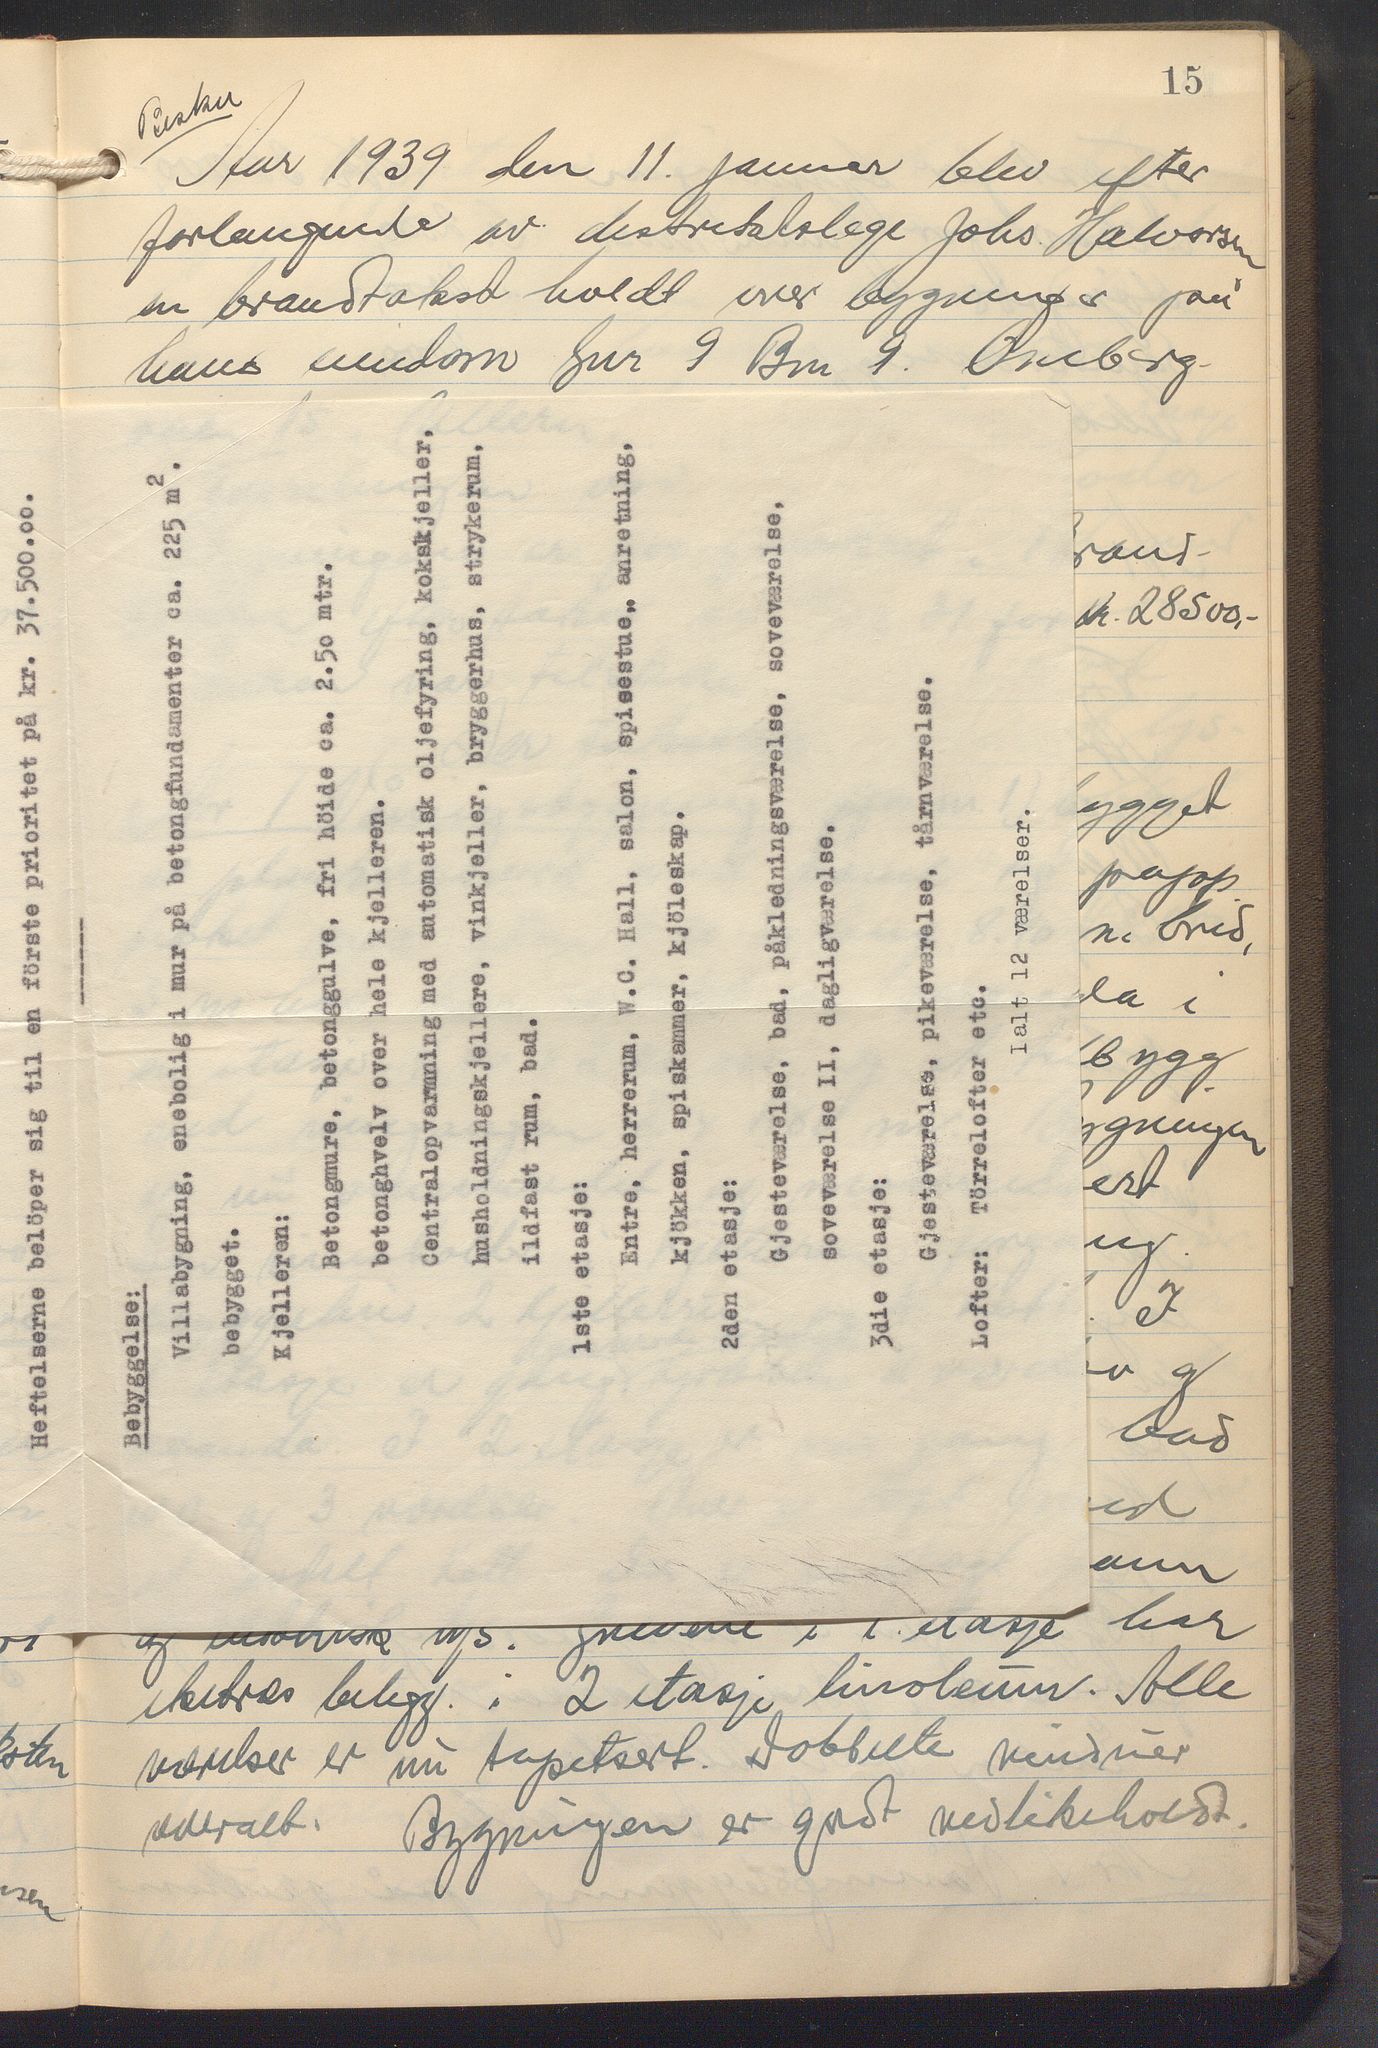 15
Aar 1939 den 11. januar blev efter
forlangende av distriktslege Johs. Halvorsen
en brandtakst holdt over bygninger på
hans eiendom Gnr 9 Bnr 9.
Heftelserne belöper sig til en förste prioritet på kr. 37.500.oo.
------
Bebyggelse:
Villabygning, enebolig i mur på betongfundamenter ca. 225 m2.
bebygget.
Kjelleren:
Betongmure, betonggulve, fri höide ca. 2.5o mtr.
betonghvelv over hele kjelleren.
Centralopvarmning med automatisk oljefyring, kokskjeller,
husholdningskjellere, vinkjeller, bryggerhus, strykerum,
ildfast rum, bad.
1ste etasje:
Entre, herrerum, W.C. Hall, salon, spisestue,, anretning,
kjökken, spiskammer, kjöleskap.
2den etasje:
Gjesteværelse, bad, påkledningsværelse, soveværelse,
soveværelse II, dagligværelse.
3die etasje:
Gjesteværelse, pikeværelse, tårnværelse.
Lofter: Törrelofter etc.
Ialt 12 værelser.
rand-
kr. 28500,-
ygget
papp
m. bred,
da i
bygg
ygningen
ert
ng.
. I
og
bad
ed
ann
og elektrisk lys. Gulvene i 1. etasje har
ekstras belegg. i 2 etasje linoleum. Alle
værelser er nu tapetsert. Dobbelte vinduer
overalt. Bygningen er godt vedlikeholdt.
sten
sen